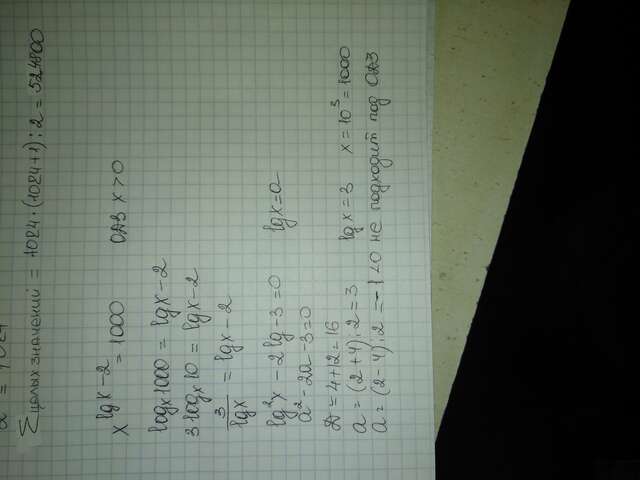 2 = 1024
∑ целых значений = 1024·(1024+1):2 = 524800
x^(lgx-2) = 1000 ОДЗ x>0
logₓ1000 = lgx-2
3logₓ10 = lgx-2
3/lgx = lgx-2
lg²x - 2lg-3=0 lgx=a
a²-2a-3=0
D=4+12=16
a=(2+4):2=3 lgx=3 x=10³=1000
a=(2-4):2=-1<0 не подходит под ОДЗ